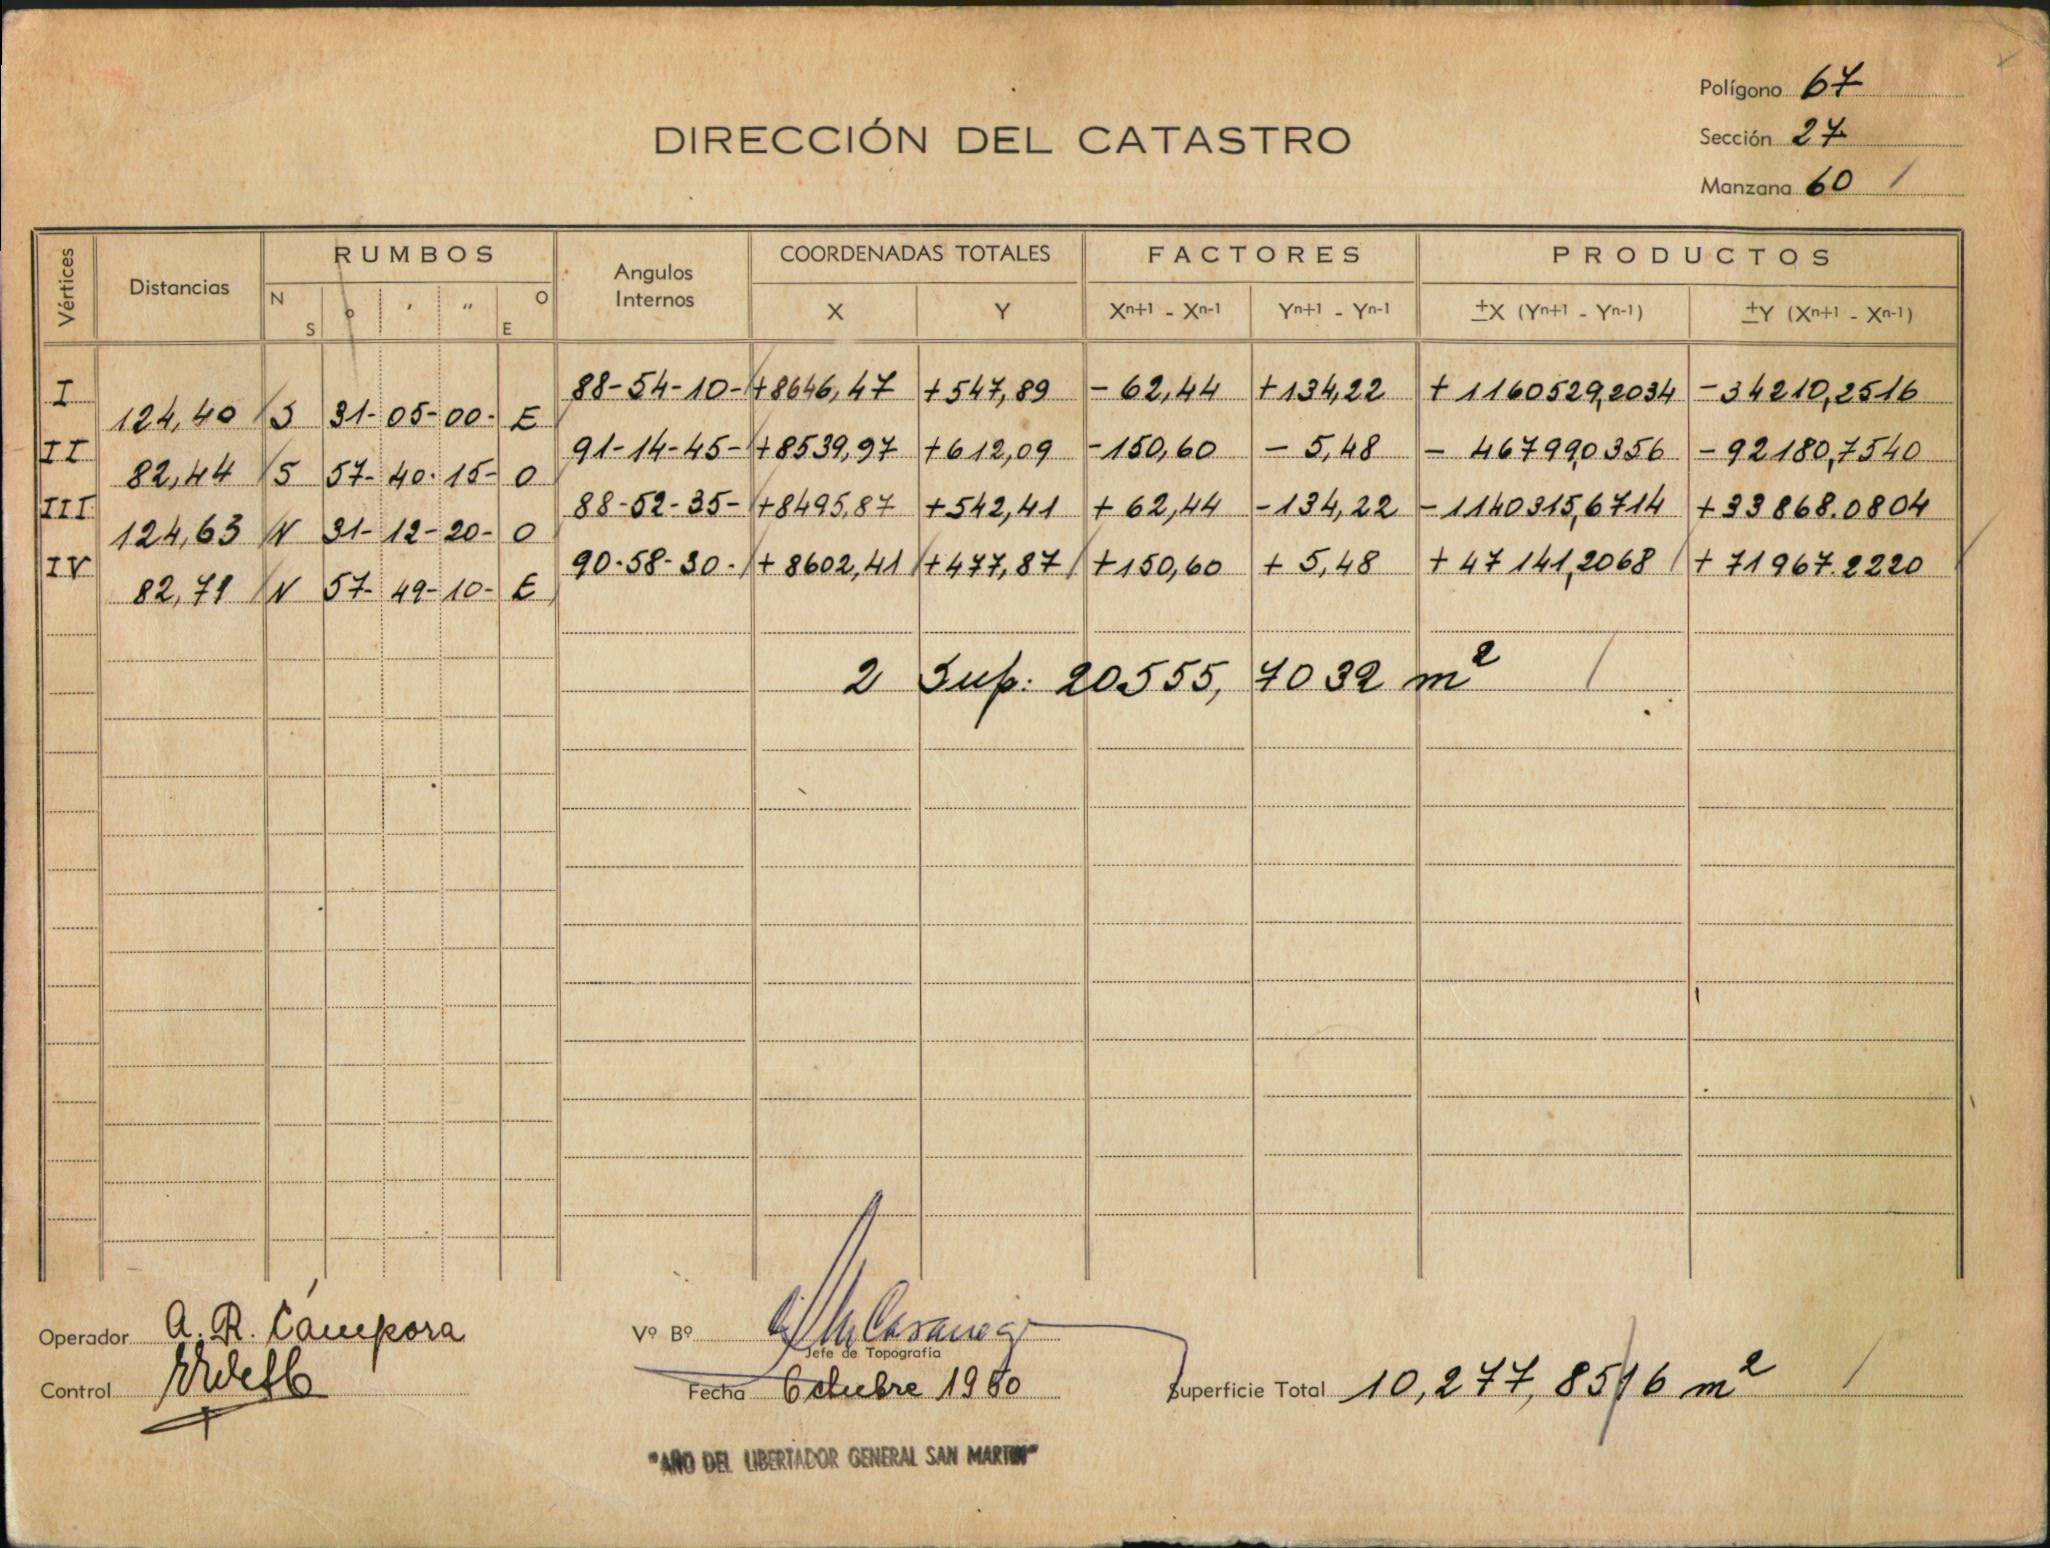 Polígono 67
DIRECCIÓN DEL CATASTRO
Sección 27
Manzana 60
Vértices Distancias RUMBOS Angulos Internos COORDENADAS TOTALES FACTORES PRODUCTOS
N S ° ' " O E X Y Xn+1 - Xn-1 Yn+1 - Yn-1 ±X (Yn+1 - Yn-1) ±Y (Xn+1 - Xn-1)
I 88-54-10- +8646,47 +547,89 - 62,44 +134,22 + 1160529,2034 -34210,2516
124,40 S 31- 05- 00- E
II 91-14-45- +8539,97 +612,09 -150,60 - 5,48 - 46799,0356 -92180,7540
82,44 S 57- 40- 15- O
III 88-52-35- +8495,87 +542,41 + 62,44 -134,22 -1140315,6714 +33868.0804
124,63 N 31- 12- 20- O
IV 90-58-30- + 8602,41 +477,87 +150,60 + 5,48 + 47141,2068 + 71967.2220
82,71 N 57- 49- 10- E
2 Sup: 20555,7032 m²
Operador A. R. Cámpora Vº Bº
Jefe de Topografía
Control Fecha Octubre 1950 Superficie Total 10,277,8516 m²
"AÑO DEL LIBERTADOR GENERAL SAN MARTIN"